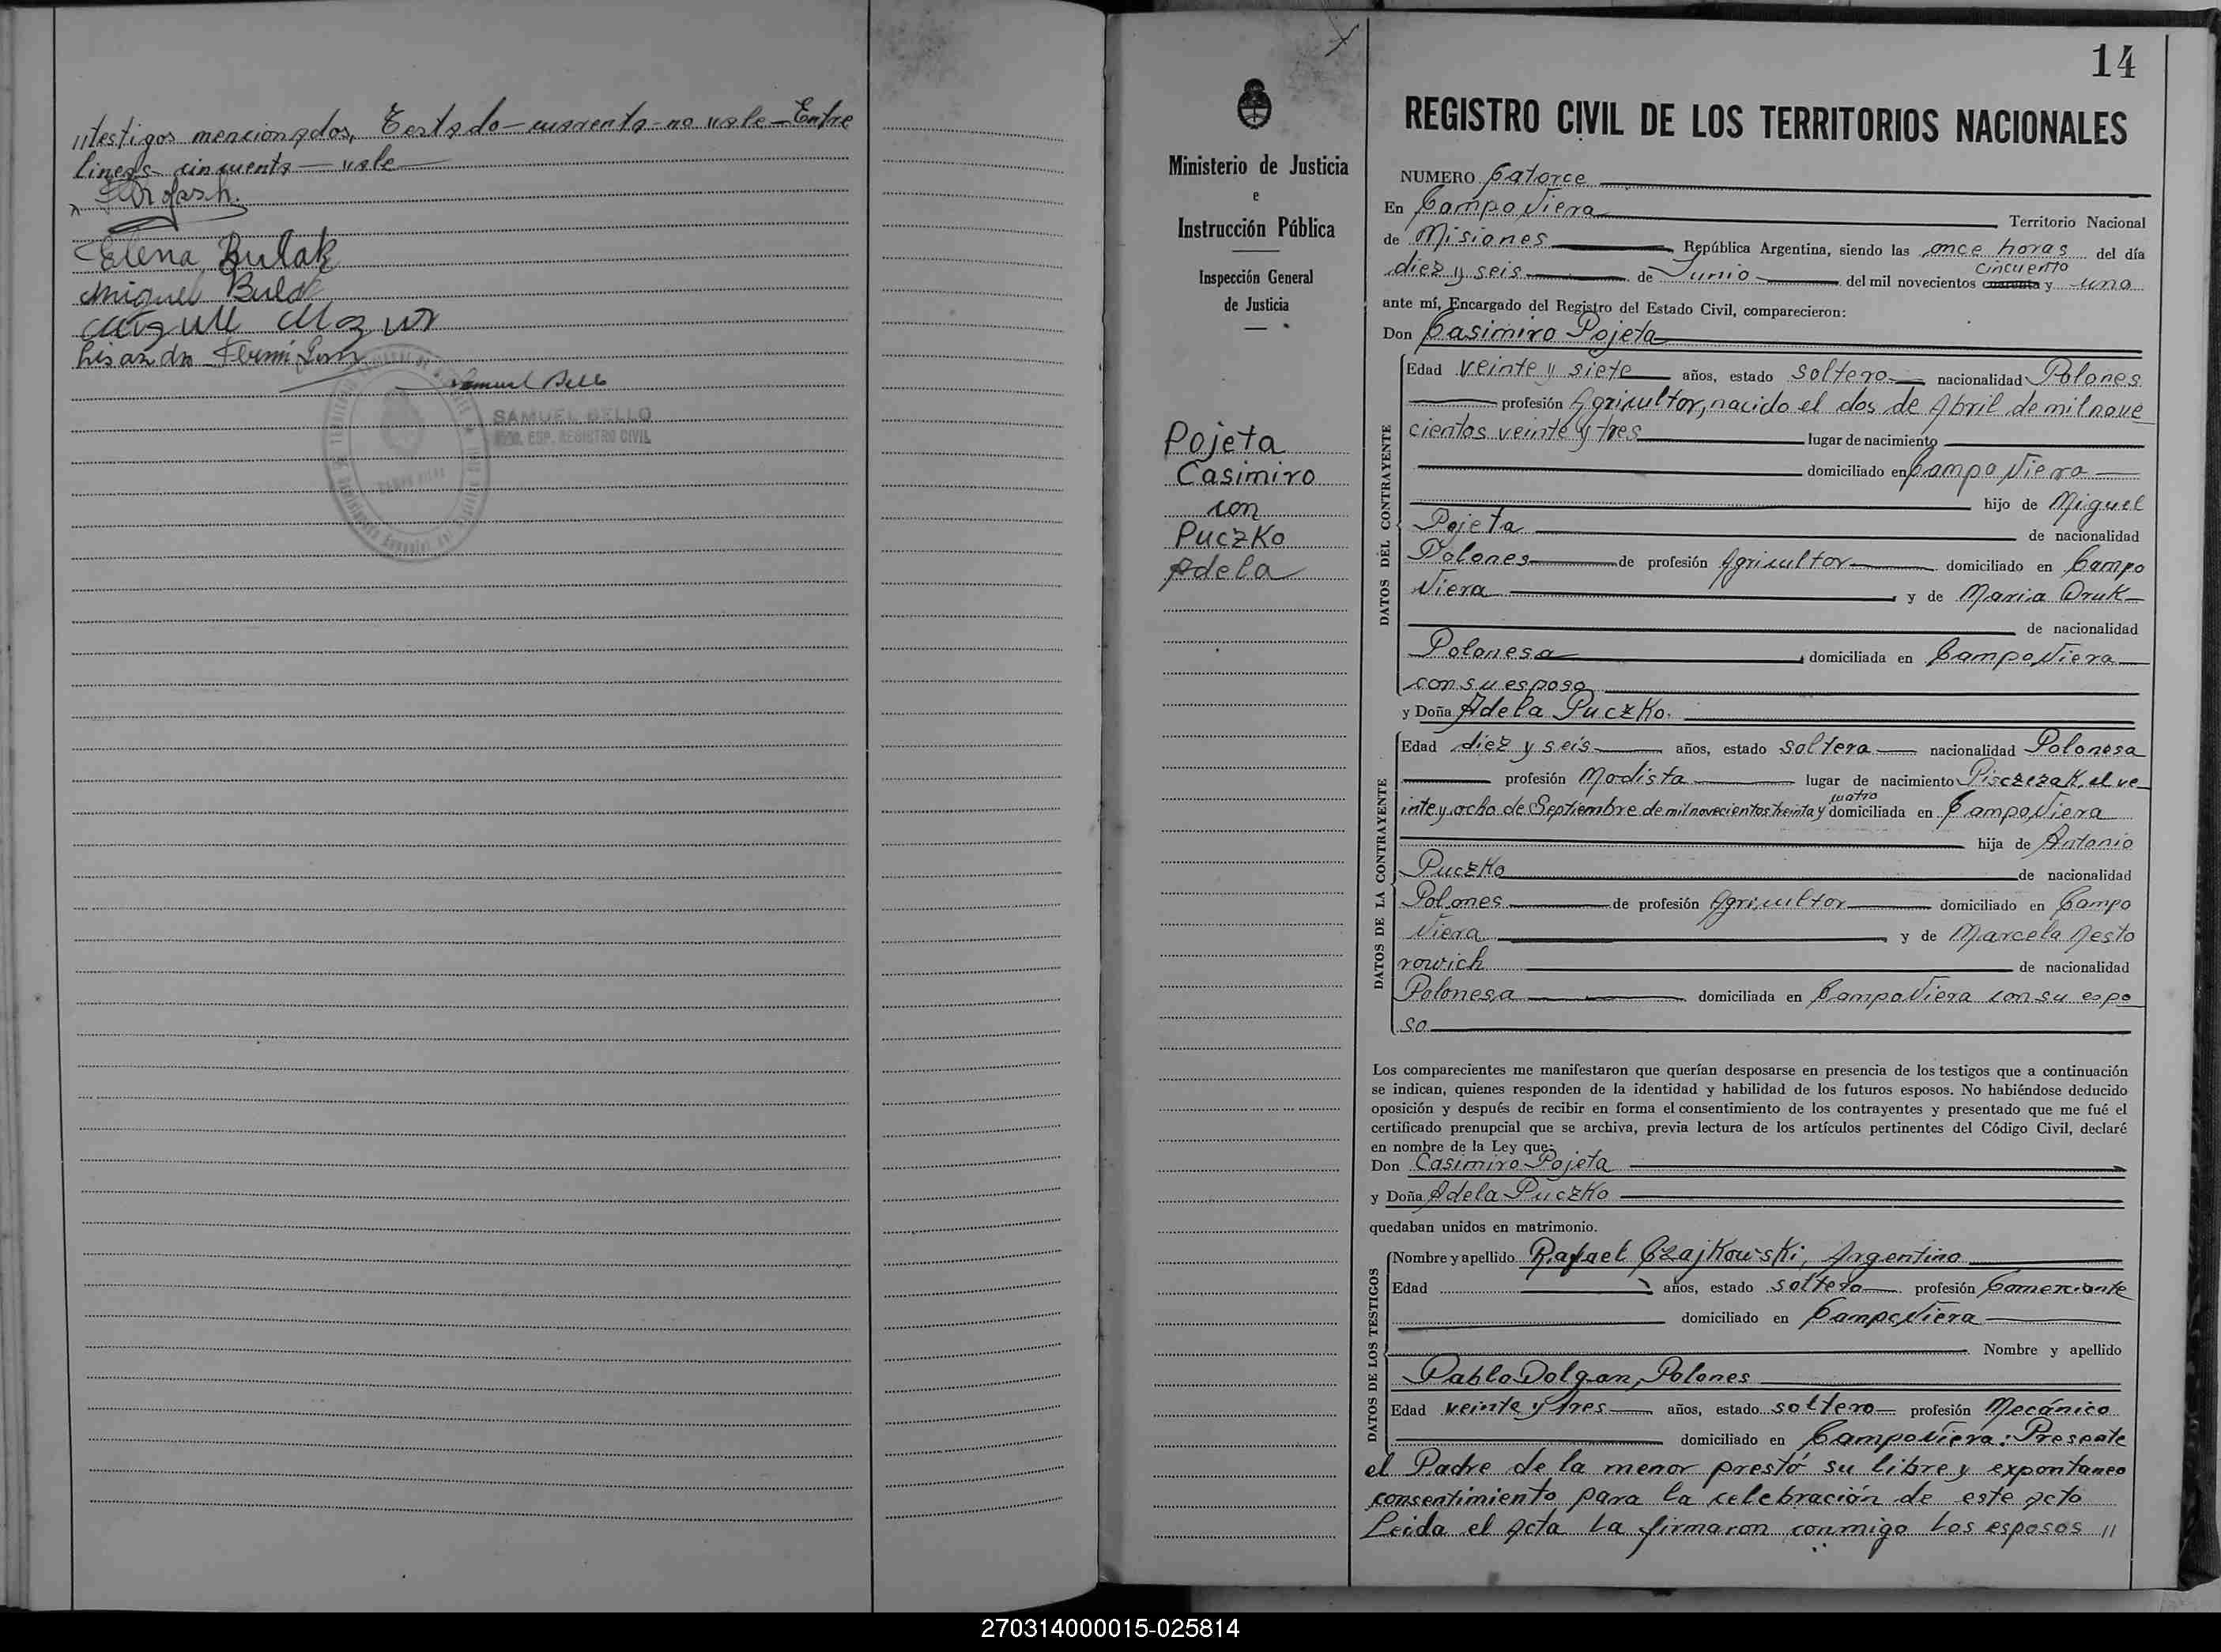 "testigos mencionados, Testado - cuarenta - no vale - Entre
lineas cincuenta - vale
Elena Bulak
Miguel Bulak
Miguel Mazur
Lisandro
Samuel Bello
SAMUEL BELLO
ESP. REGISTRO CIVIL
14
Ministerio de Justicia
e
Instrucción Pública
Inspección General
de Justicia
Pojeta
Casimiro
con
Puczko
Adela
REGISTRO CIVIL DE LOS TERRITORIOS NACIONALES
NUMERO Catorce
En Campo Viera Territorio Nacional
de Misiones República Argentina, siendo las once horas del día
cincuenta
diez y seis de Junio del mil novecientos cuarenta y uno
ante mí, Encargado del Registro del Estado Civil, comparecieron:
Don Casimiro Pojeta
DATOS DEL CONTRAYENTE
Edad veinte y siete años, estado soltero nacionalidad Polones
profesión Agricultor, nacido el dos de Abril de mil nove
cientos veinte y tres lugar de nacimiento
domiciliado en Campo Viera
hijo de Miguel
Pojeta de nacionalidad
Polones de profesión Agricultor domiciliado en Campo
Viera y de Maria Druk
de nacionalidad
Polonesa domiciliada en Campo Viera
con su esposo
y Doña Adela Puczko.
DATOS DE LA CONTRAYENTE
Edad diez y seis años, estado soltera nacionalidad Polonesa
profesión Modista lugar de nacimiento Pisczezak, el ve
cuatro
inte y ocho de Septiembre de mil novecientos treinta y domiciliada en Campo Viera
hija de Antonio
Puczko de nacionalidad
Polones de profesión Agricultor domiciliado en Campo
Viera y de Marcela Nesto
rowich de nacionalidad
Polonesa domiciliada en Campo Viera con su espo
so
Los comparecientes me manifestaron que querían desposarse en presencia de los testigos que a continuación
se indican, quienes responden de la identidad y habilidad de los futuros esposos. No habiéndose deducido
oposición y después de recibir en forma el consentimiento de los contrayentes y presentado que me fué el
certificado prenupcial que se archiva, previa lectura de los artículos pertinentes del Código Civil, declaré
en nombre de la Ley que:
Don Casimiro Pojeta
y Doña Adela Puczko
quedaban unidos en matrimonio.
DATOS DE LOS TESTIGOS
Nombre y apellido Rafael Czajkowski, Argentino
Edad años, estado soltero profesión Comerciante
domiciliado en Campo Viera
Nombre y apellido
Pablo Dolgan, Polones
Edad veinte y tres años, estado soltero profesión Mecánico
domiciliado en Campo Viera: Presente
el Padre de la menor prestó su libre y expontaneo
consentimiento para la celebración de este acto
Leida el acta la firmaron conmigo los esposos "
270314000015-025814